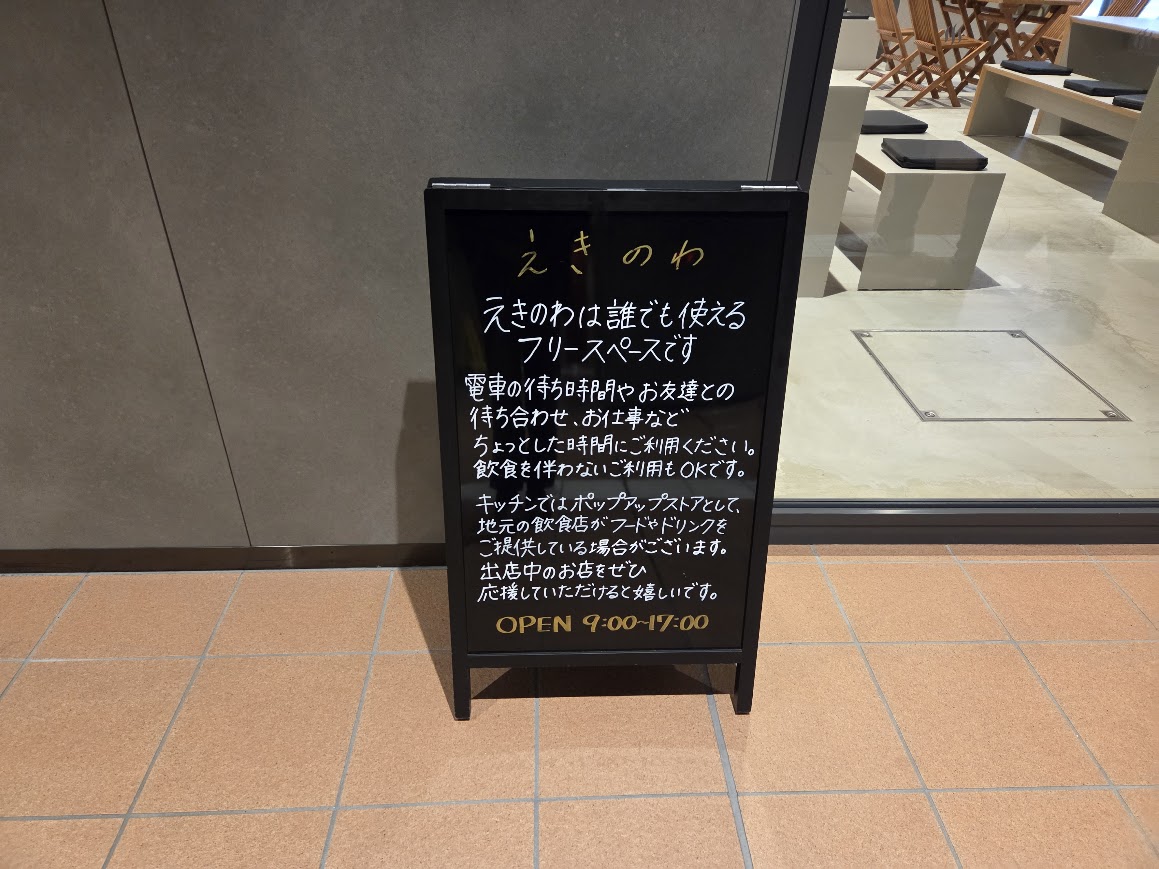 えきのわ
えきのわは誰でも使える
フリースペースです
電車の待ち時間やお友達との
待ち合わせ、お仕事など
ちょっとした時間にご利用ください。
飲食を伴わないご利用もOKです。
キッチンではポップアップストアとして、
地元の飲食店がフードやドリンクを
ご提供している場合がございます。
出店中のお店をぜひ
応援していただけると嬉しいです。
OPEN 9:00~17:00